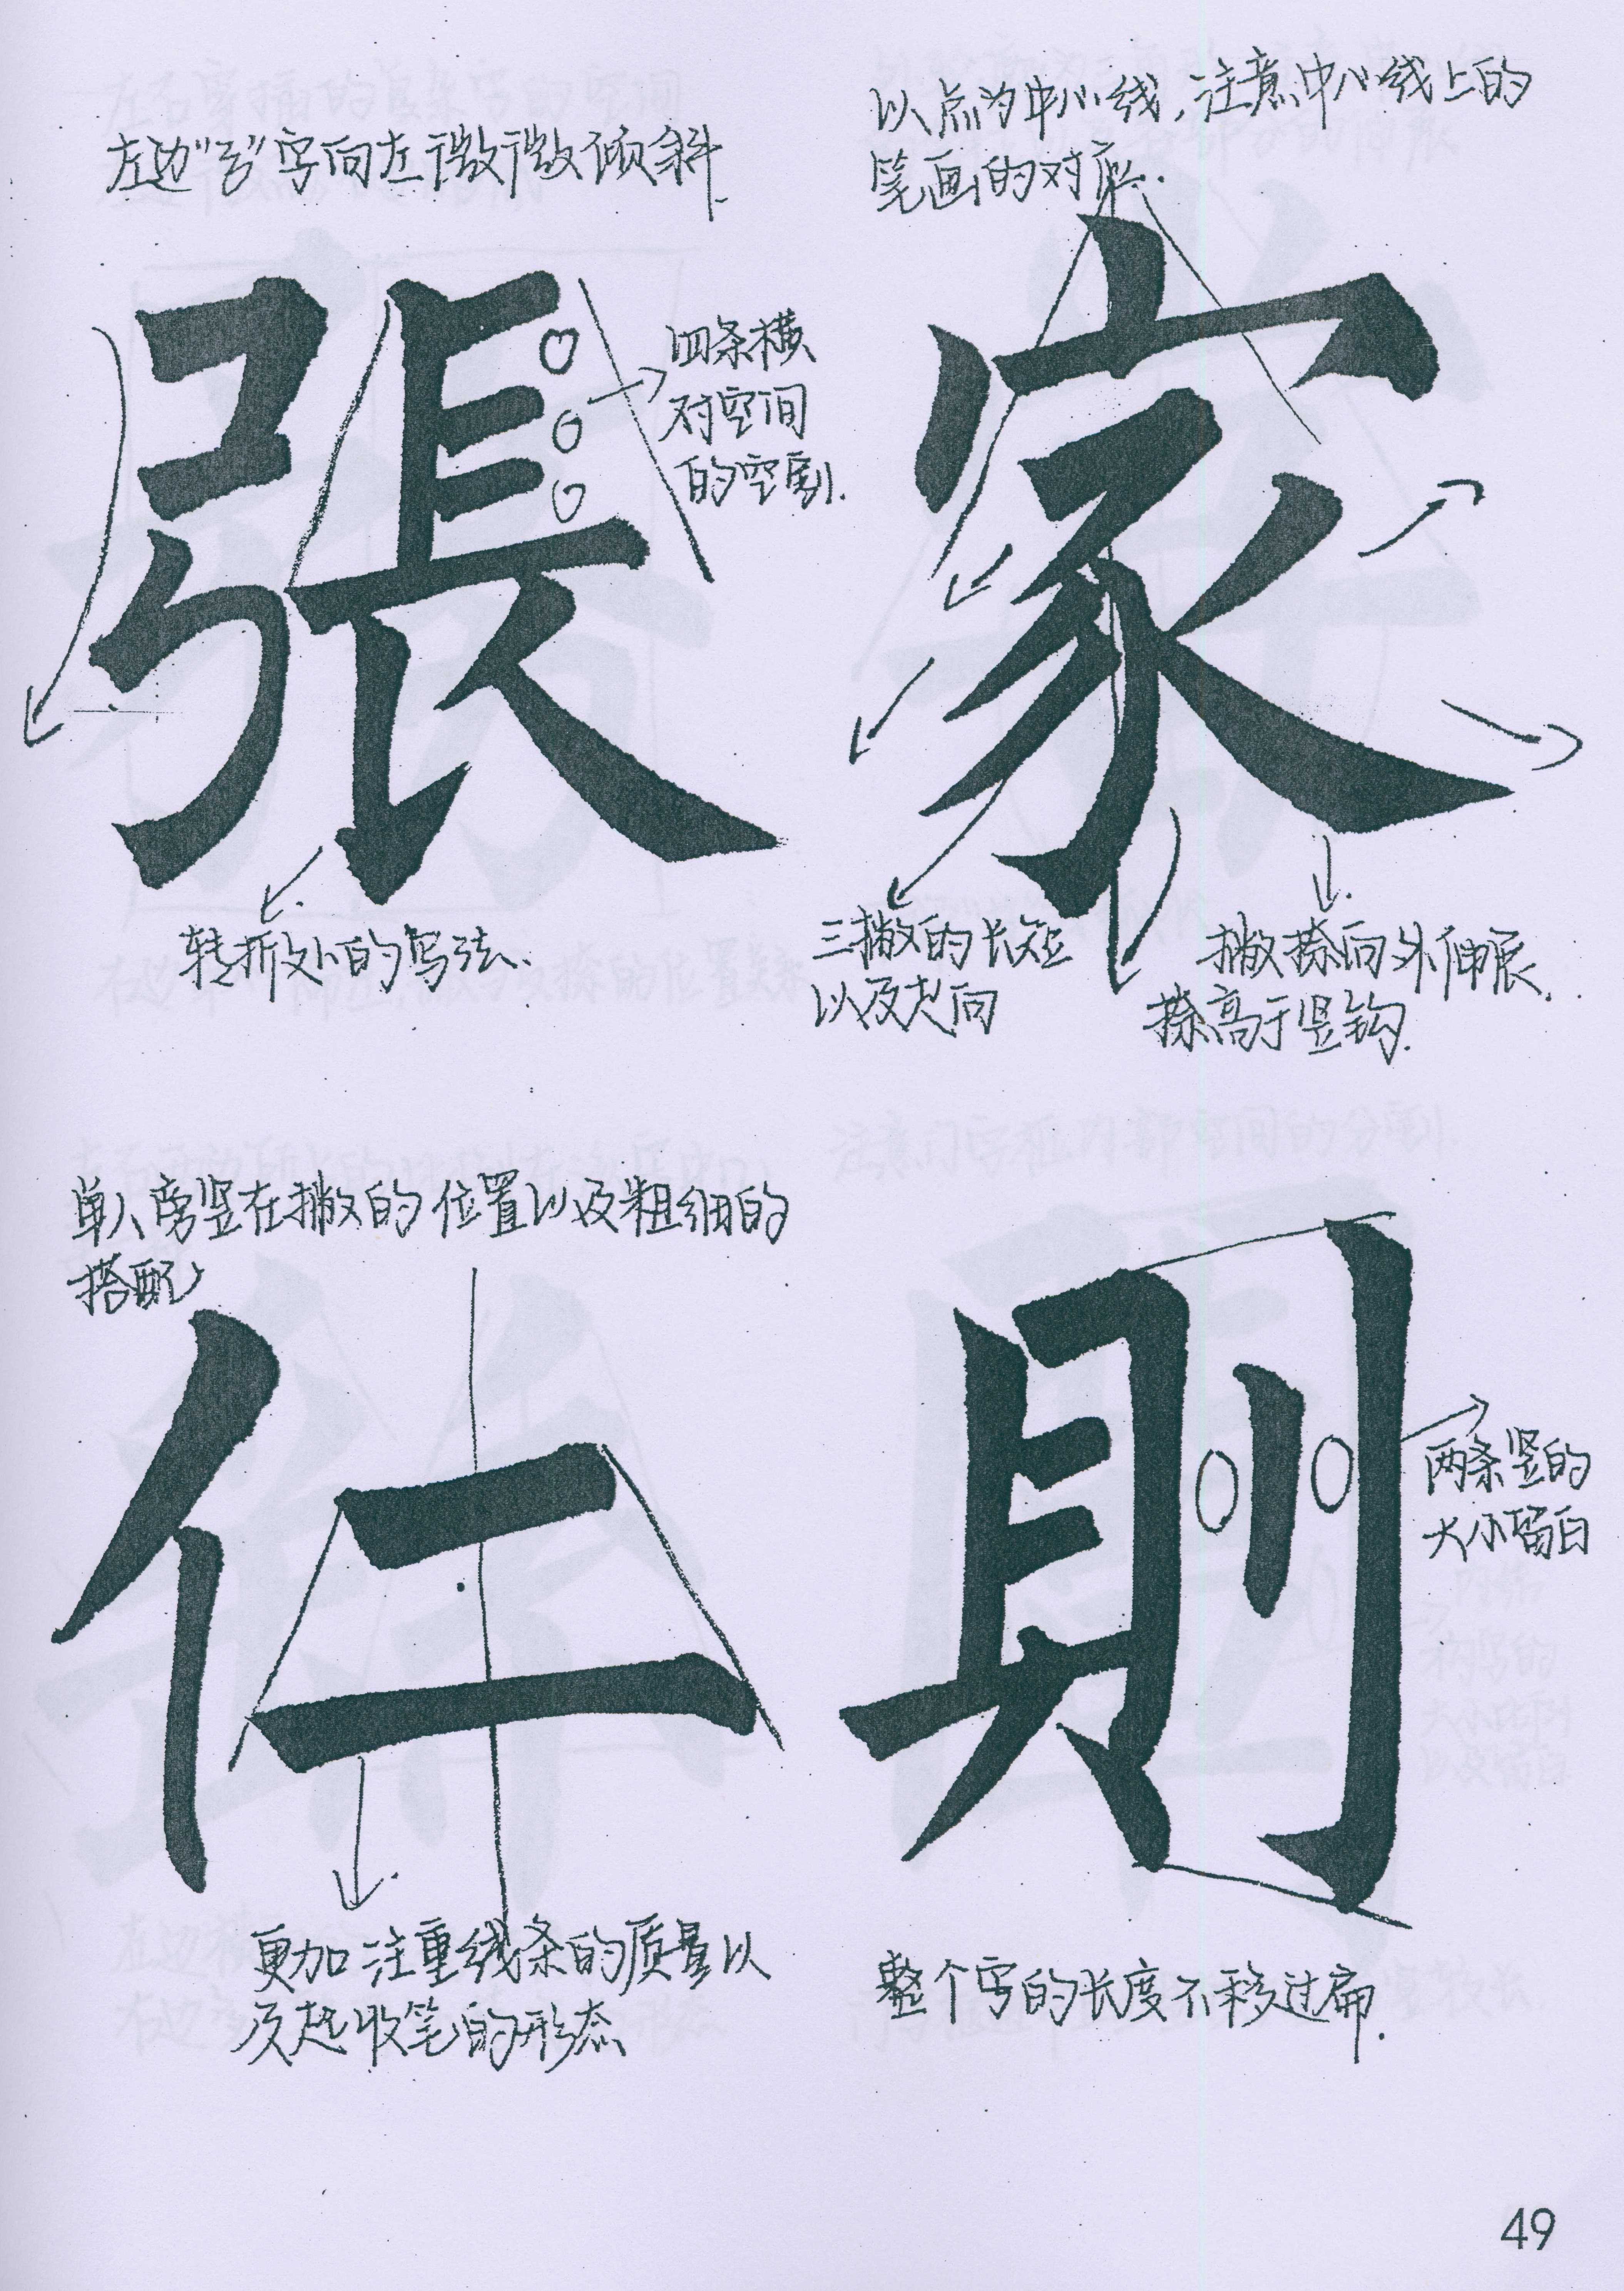 左边“弓”字向左微微倾斜.
張
四条横
对空间
的空割.
转折处的写法.
以点为中心线,注意中心线上的
笔画的对应.
家
三撇的长短
以及走向
撇捺向外伸展.
捺高于竖钩.
单人旁竖在撇的位置以及粗细的
搭配
仁
更加注重线条的质量以
及起收笔的形态
則
两条竖的
大小留白
整个字的长度不移过扁.
49